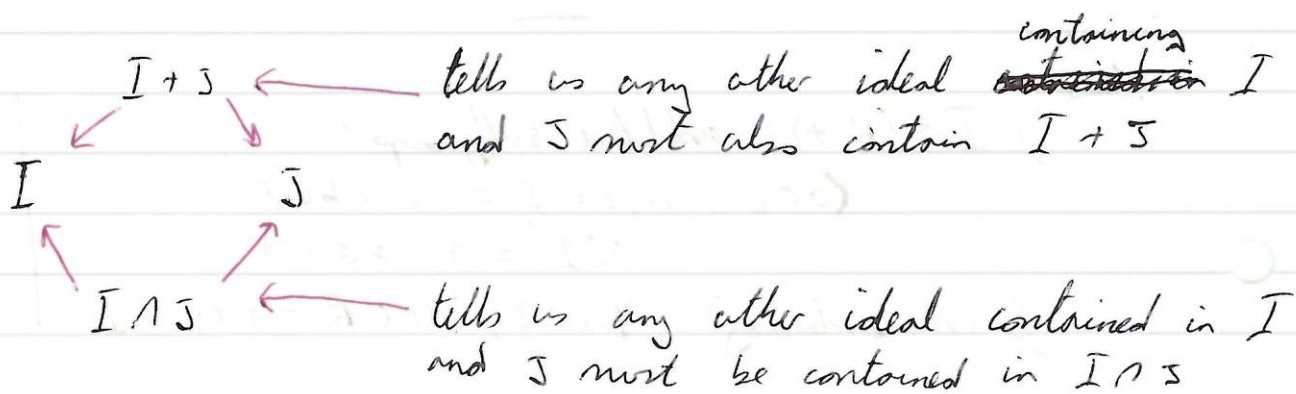 containing
I + J tells us any other ideal contained in I
and J must also contain I + J
I J
I ∩ J tells us any other ideal contained in I
and J must be contained in I ∩ J